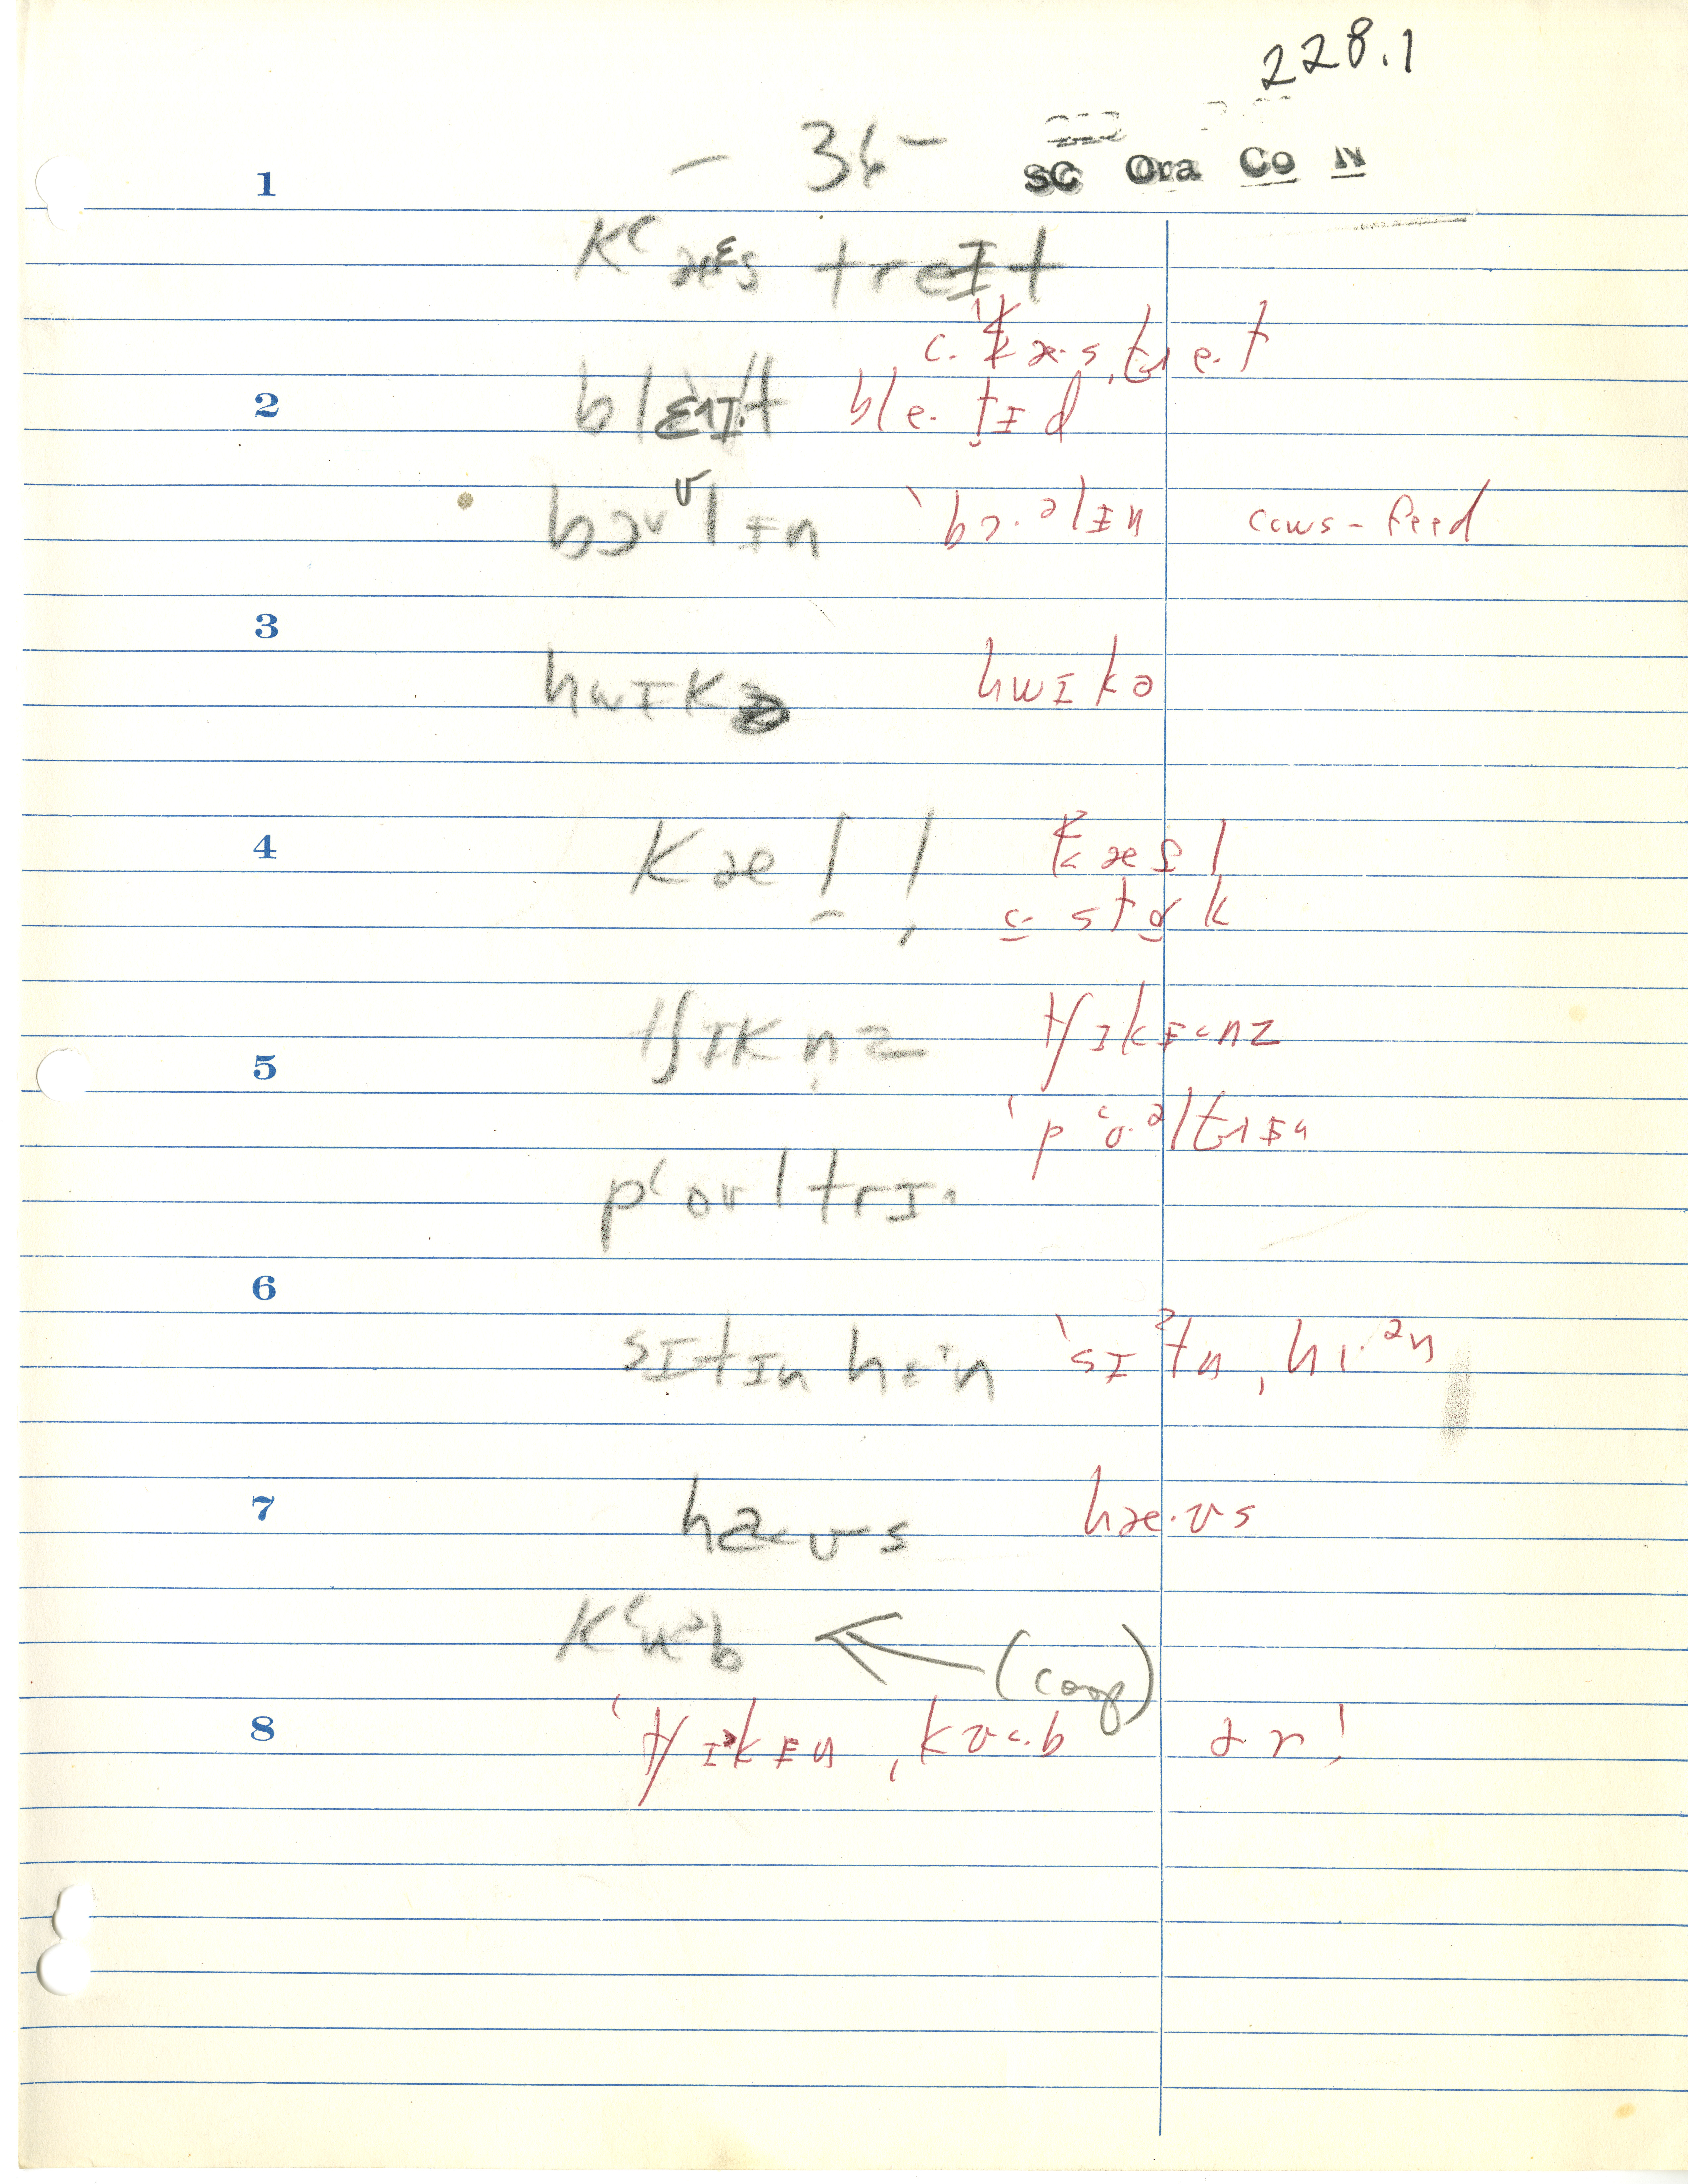 228.1
- 36 -
SC Ora Co N
1
kʽæɛs treɪt
c. ˈkæ·sˌtre·t
2 blɛɪt ble·t̬ɪd
bɔʊlɪn ˈbɔ·əlɪn cows-feed
3
hwɪkə hwɪkə
4 kæl̯ l̩ k̬æfl
c. stɑk
tʃɪkn̩z tʃɪkɪ˂nz
5
ˈpʽo·əltrɪ^
pʽoʊltrɪ^
6
sɪtɪn hɛɪn ˈsɪʔtn ˌhɪ·ən
7 haʊs hæ·ʊs
kʽuəb ← (coop)
8 ˈtʃɪkɪn ˌkʊ˂·b a·r!